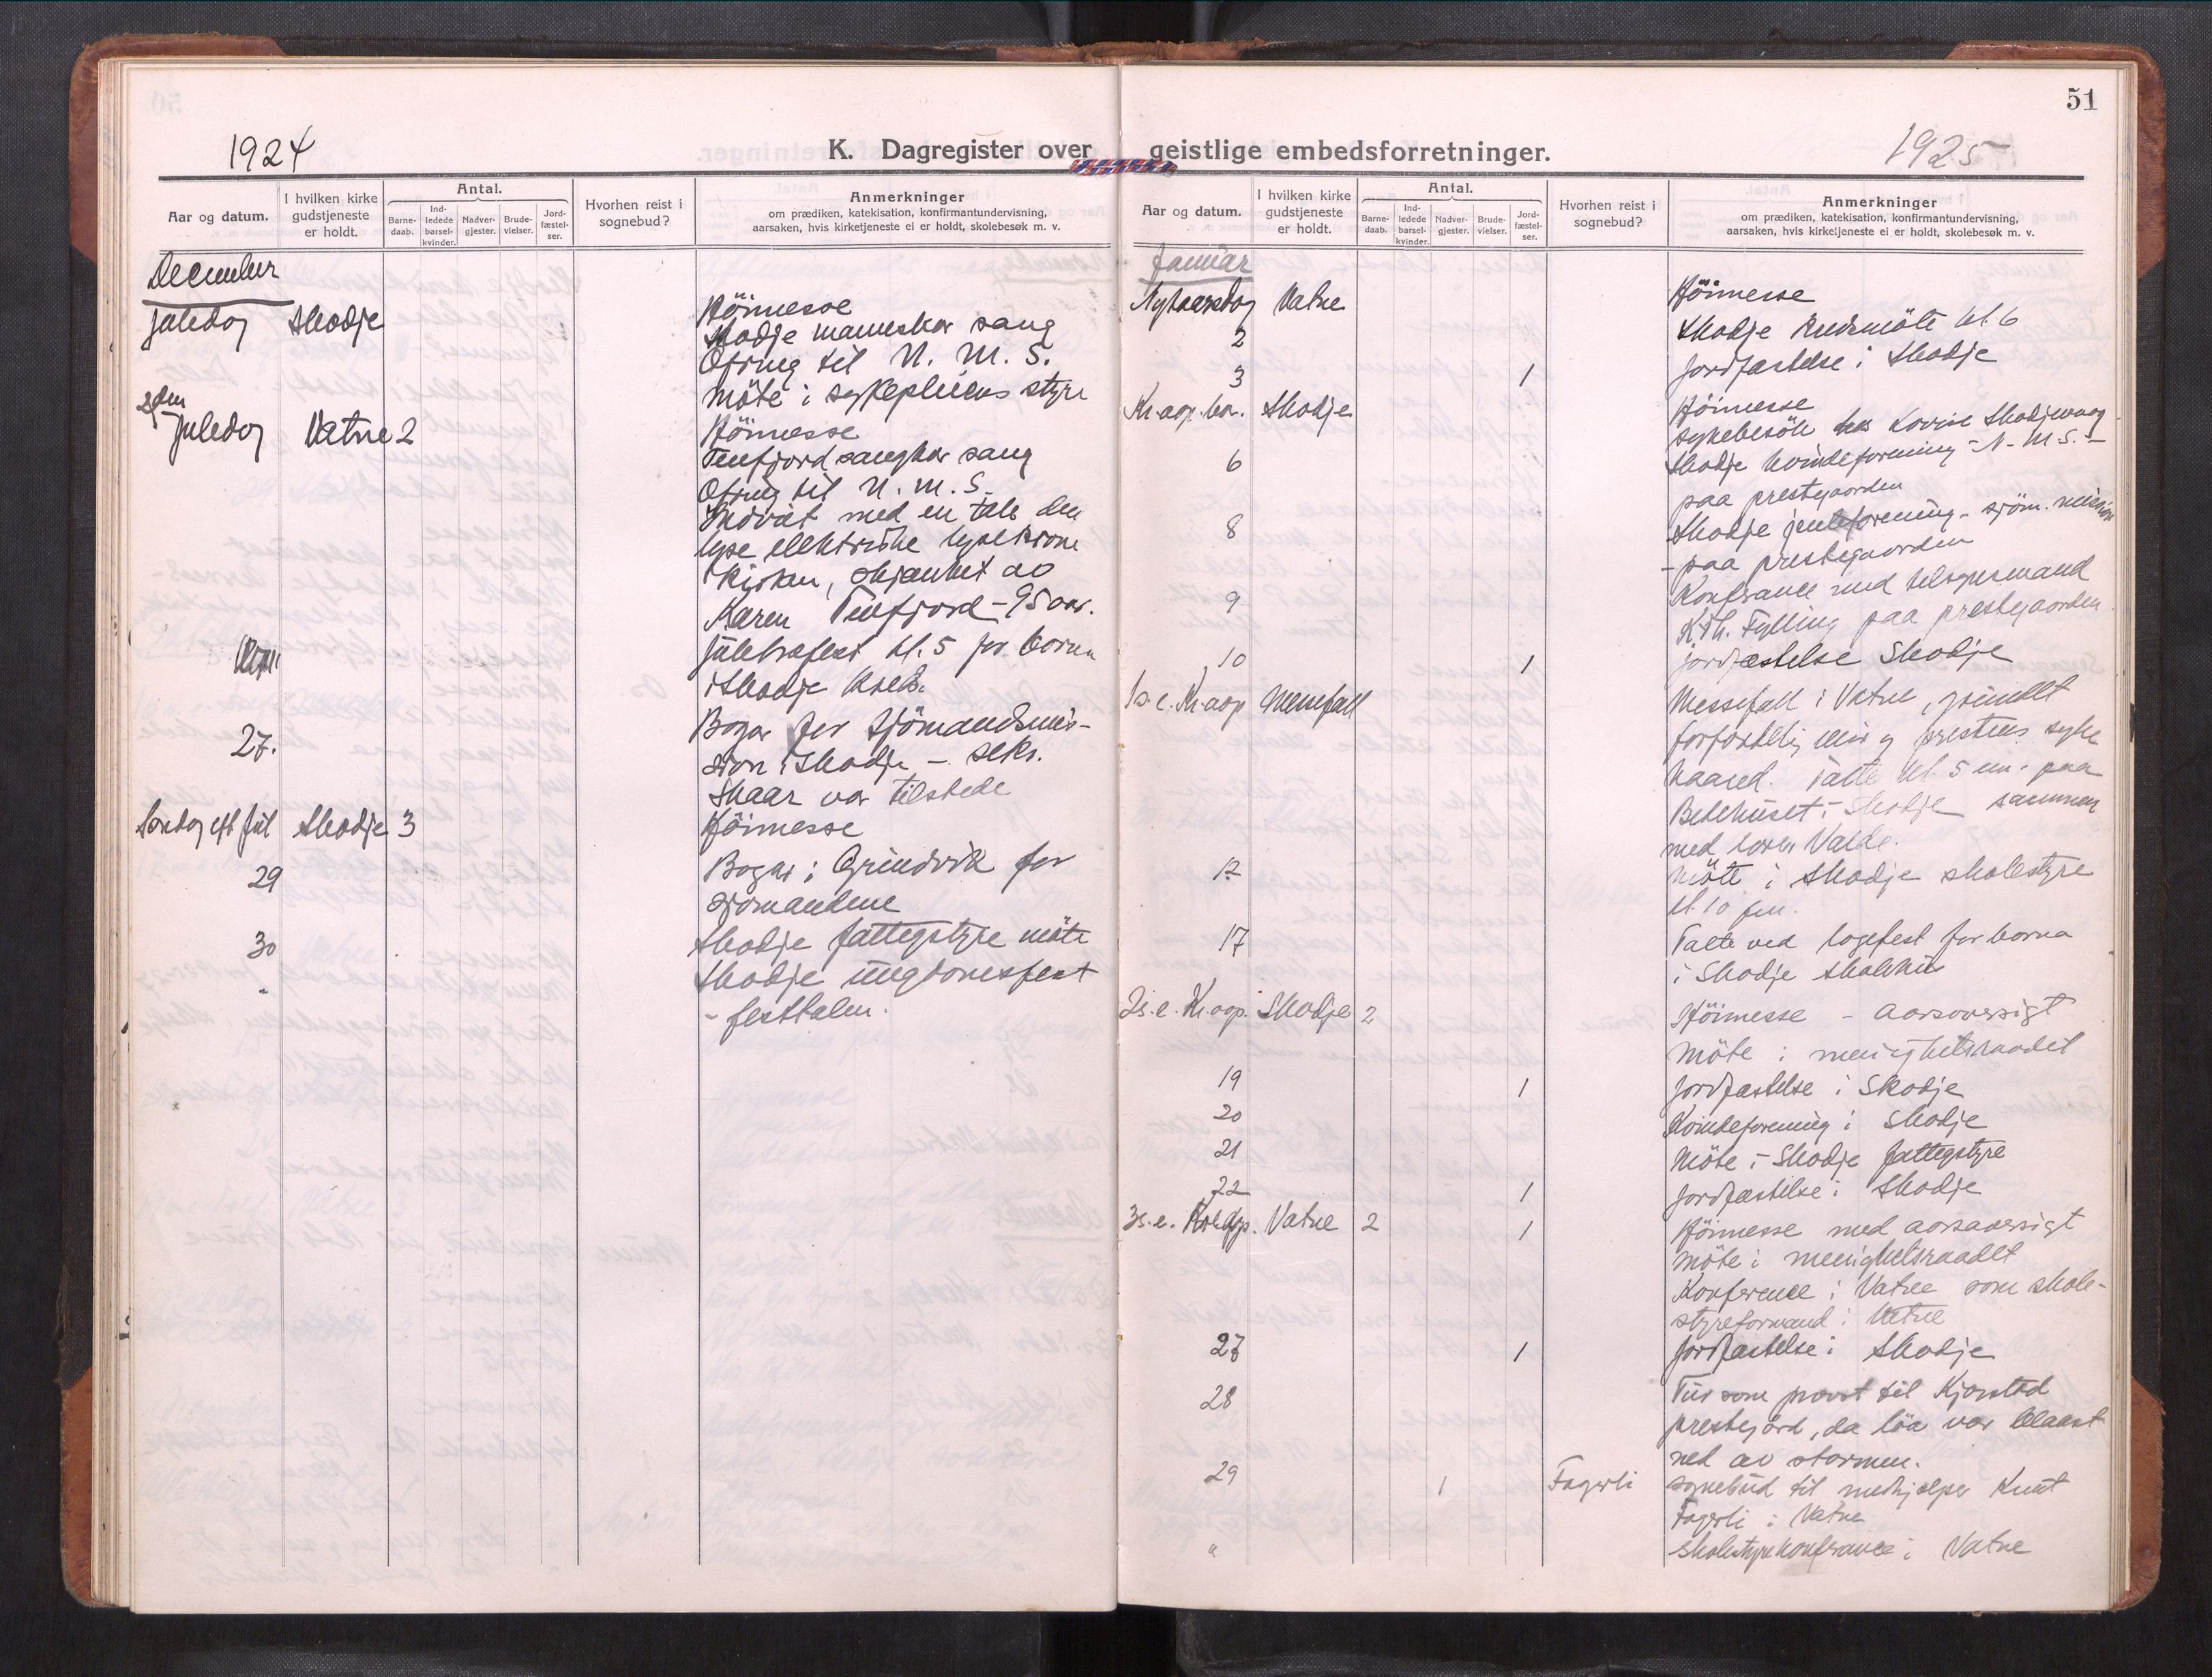 51
1924
K. Dagregister over
I hvilken kirke gudstjeneste er holdt.
Antal.
Aar og datum.
Barne-daab.
Ind-ledede barsel-kvinder.
Nadver-gjester.
Brude-vielser.
Jord-fæstel-ser.
Hvorhen reist i sognebud?
Anmerkninger
om prædiken, katekisation, konfirmantundervisning,
aarsaken, hvis kirketjeneste ei er holdt, skolebesøk m. v.
December
Juledag Skodje Höimesse
Skodje manneskor sang
Ofring til N. M. S.
Möte i sykepleiens styre
2den Juledag Vatne 2 Höimesse
Tenfjord sangkor sang
Ofring til N. M. S.
Indviet med en tale den
lyse elektriske lysekrone
i kirken, skjænket av
Karen Tenfjord - 95 aar.
Juletrafest kl. 5 for borna
i Skodje
27. Bogar for Sjömandsmis-
sion i Skodje - sekr.
Skaar var tilstede
Söndag eft Jul Skodje 3 Höimesse
29 Bogar i Grindvik for
sjömandene
30 Skodje fattigstyre möte
" Skodje ungdomsfest
- festtalen.
geistlige embedsforretninger.
1925
Aar og datum.
I hvilken kirke gudstjeneste er holdt.
Antal.
Barne-daab.
Ind-ledede barsel-kvinder.
Nadver-gjester.
Brude-vielser.
Jord-fæstel-ser.
Hvorhen reist i sognebud?
Anmerkninger
om prædiken, katekisation, konfirmantundervisning,
aarsaken, hvis kirketjeneste ei er holdt, skolebesøk m. v.
Januar
Nytaarsdag Vatne Höimesse
2 Skodje Kredsmöte kl. 6
3 1 Jordfæstelse i Skodje
Kr. aap. ba. Skodje Höimesse
sykebesök hos Lovise Skodjevaag
6 Skodje kvindeforening - N. M. S. -
paa prestegaarden
8 Skodje jenteforening - sjöm. mission
- paa prestegaarden
9 Konferance med
K. Th. Fylling paa prestegaarden
10 1 Jordfæstelse Skodje
1 s. e. Kr. aap Messefall Messefall i Vatne, grundet
og prestens syke
haand. Talte kl. 5 em. paa
Bedehuset i Skodje sammen
med Valde.
12 Möte i Skodje skolestyre
kl. 10 fm.
17 Talte ved logefest for borna
i Skodje skolehus
2 s. e. Kr. aap. Skodje 2 Höimesse - aarsoversigt
Möte i menighetsraadet
19 1 Jordfæstelse i Skodje
20 Kvindeforening i Skodje
21 Möte i Skodje fattigstyre
22 1 Jordfæstelse i Skodje
3 s. e. Kr. aap. Vatne 2 1 Höimesse med aarsoversigt
Möte i menighetsraadet
Konference i Vatne som skole-
styreformand i Vatne
27 1 Jordfæstelse i Skodje
28 Tur som provst til Kjerstad
prestejord, da löa var blaast
ned av stormen.
29 1 Fagerli sognebud til medhjælper Knut
Fagerli i Vatne
" Skolestyrekonferance i Vatne